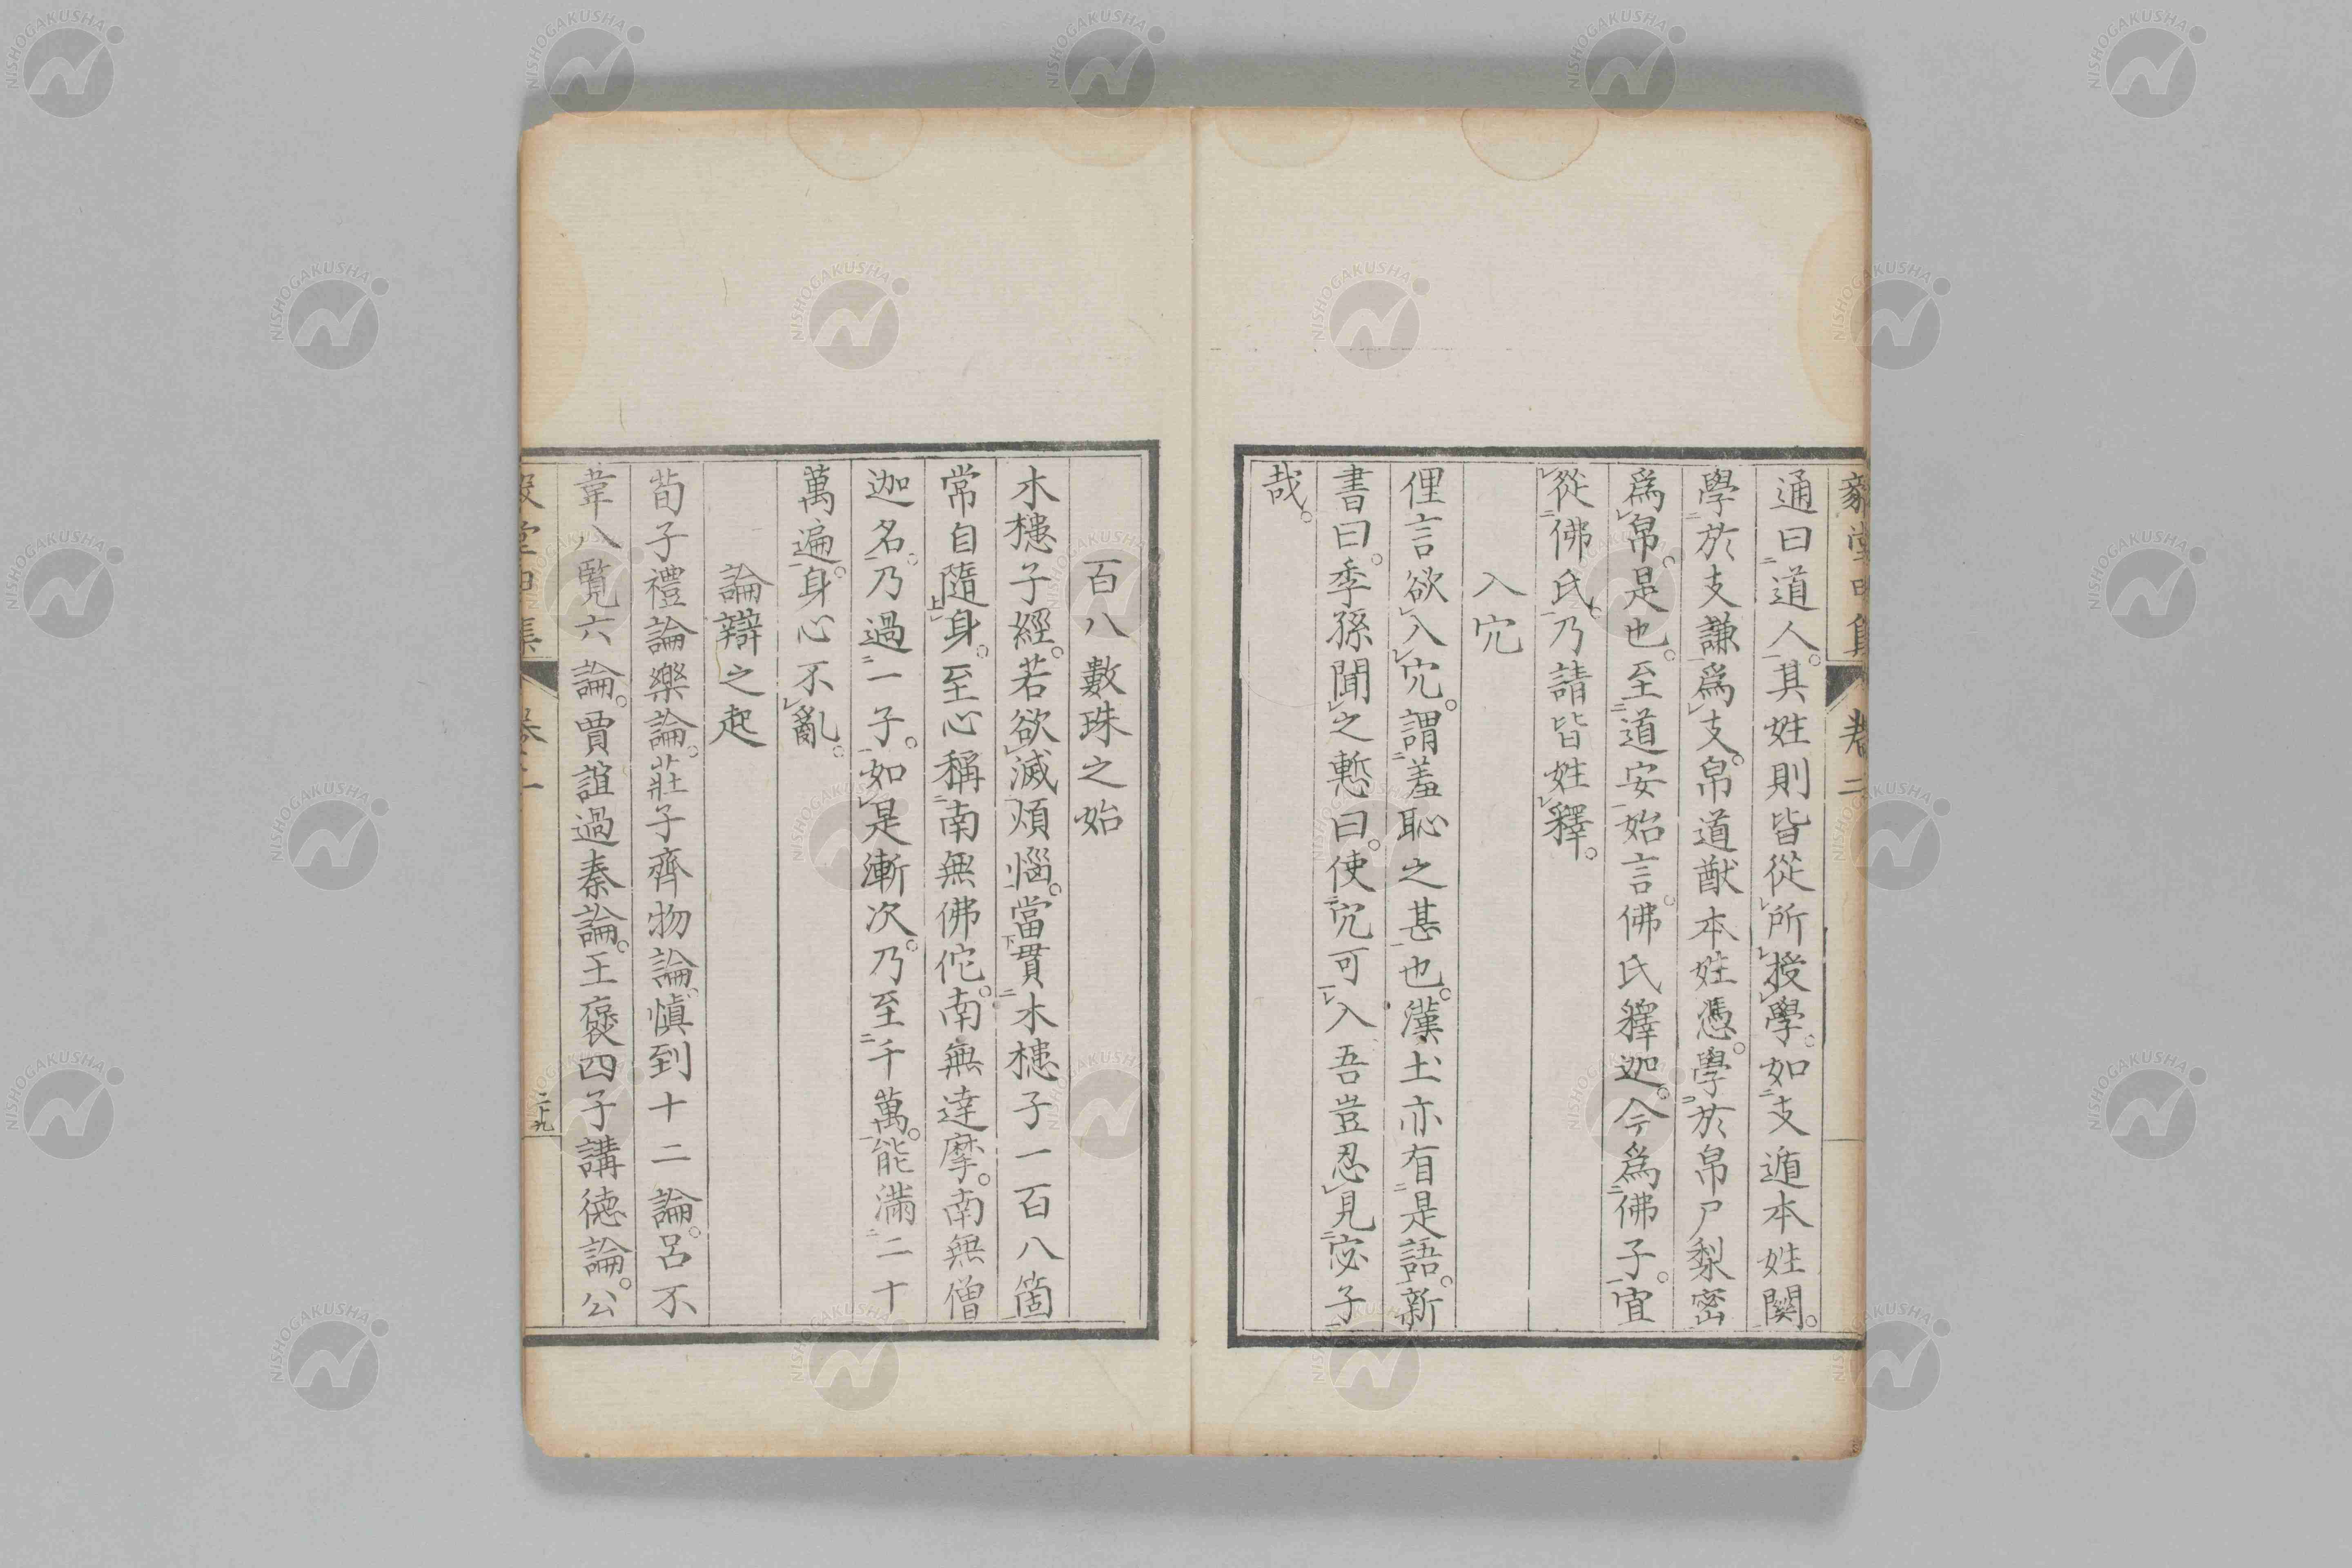 通曰道人。其姓則皆從所授學。如支遁本姓関。
學於支謙爲支。帛道猷本姓憑。學於帛尸梨密
爲帛。是也。至道安始言。佛氏釋迦。今爲佛子。宜
從佛氏。乃請皆姓釋。
入穴
俚言欲入穴。謂羞恥之甚也。漢土亦有是語。新
書曰。季孫聞之慙曰。使穴可入吾豈忍見宓子
哉。
百八數珠之始
木槵子經。若欲滅煩惱。當貫木槵子一百八箇
常自隨身。至心稱南無佛佗。南無達摩。南無僧
迦名。乃過一子。如是漸次。乃至千萬。能滿二十
萬遍。身心不亂。
論辯之起
荀子禮論樂論。莊子齊物論。愼到十二論。呂不
韋八覽六論。賈誼過秦論。王褒四子講德論。公
卷二
二十九
NISHOGAKUSHA